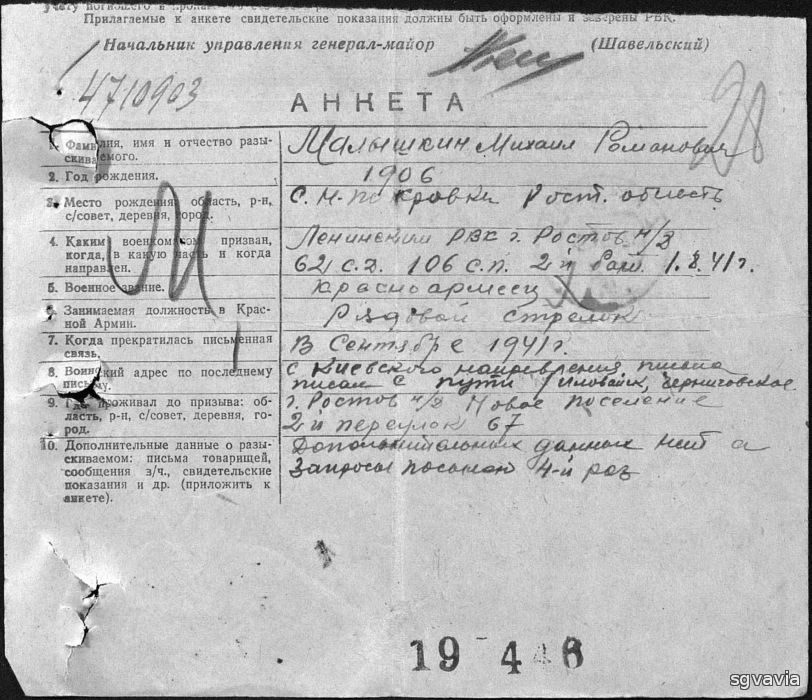 учету погибшего и
Прилагаемые к анкете свидетельские показания должны быть оформлены и заверены РВК.
Начальник управления генерал-майор (Шавельский)
4710903
28
АНКЕТА
1. Фамилия, имя и отчество разыскиваемого.
Малышкин Михаил Романович
2. Год рождения.
1906
3. Место рождения: область, р-н, с/совет, деревня, город.
с. Н-покровки Рост. область
4. Каким военкоматом призван, когда, в какую часть и когда направлен.
Ленинский РВК г. Ростов н/д
62 с.д. 106 с.п. 2й 1.8.41г.
5. Военное звание.
Красноармеец
6. Занимаемая должность в Красной Армии.
Рядовой стрелок
7. Когда прекратилась письменная связь.
В Сентябре 1941г.
8. Воинский адрес по последнему письму.
с Киевского направления письма
писал с пути Иловайск, Черниговское
9. Где проживал до призыва: область, р-н, с/совет, деревня, город.
г. Ростов н/д Новое поселение
2й переулок 67
10. Дополнительные данные о разыскиваемом: письма товарищей, сообщения з/ч., свидетельские показания и др. (приложить к анкете).
Дополнительных данных нет а
Запросы посылаю 4-й раз
М
19 4 6
sgvavia